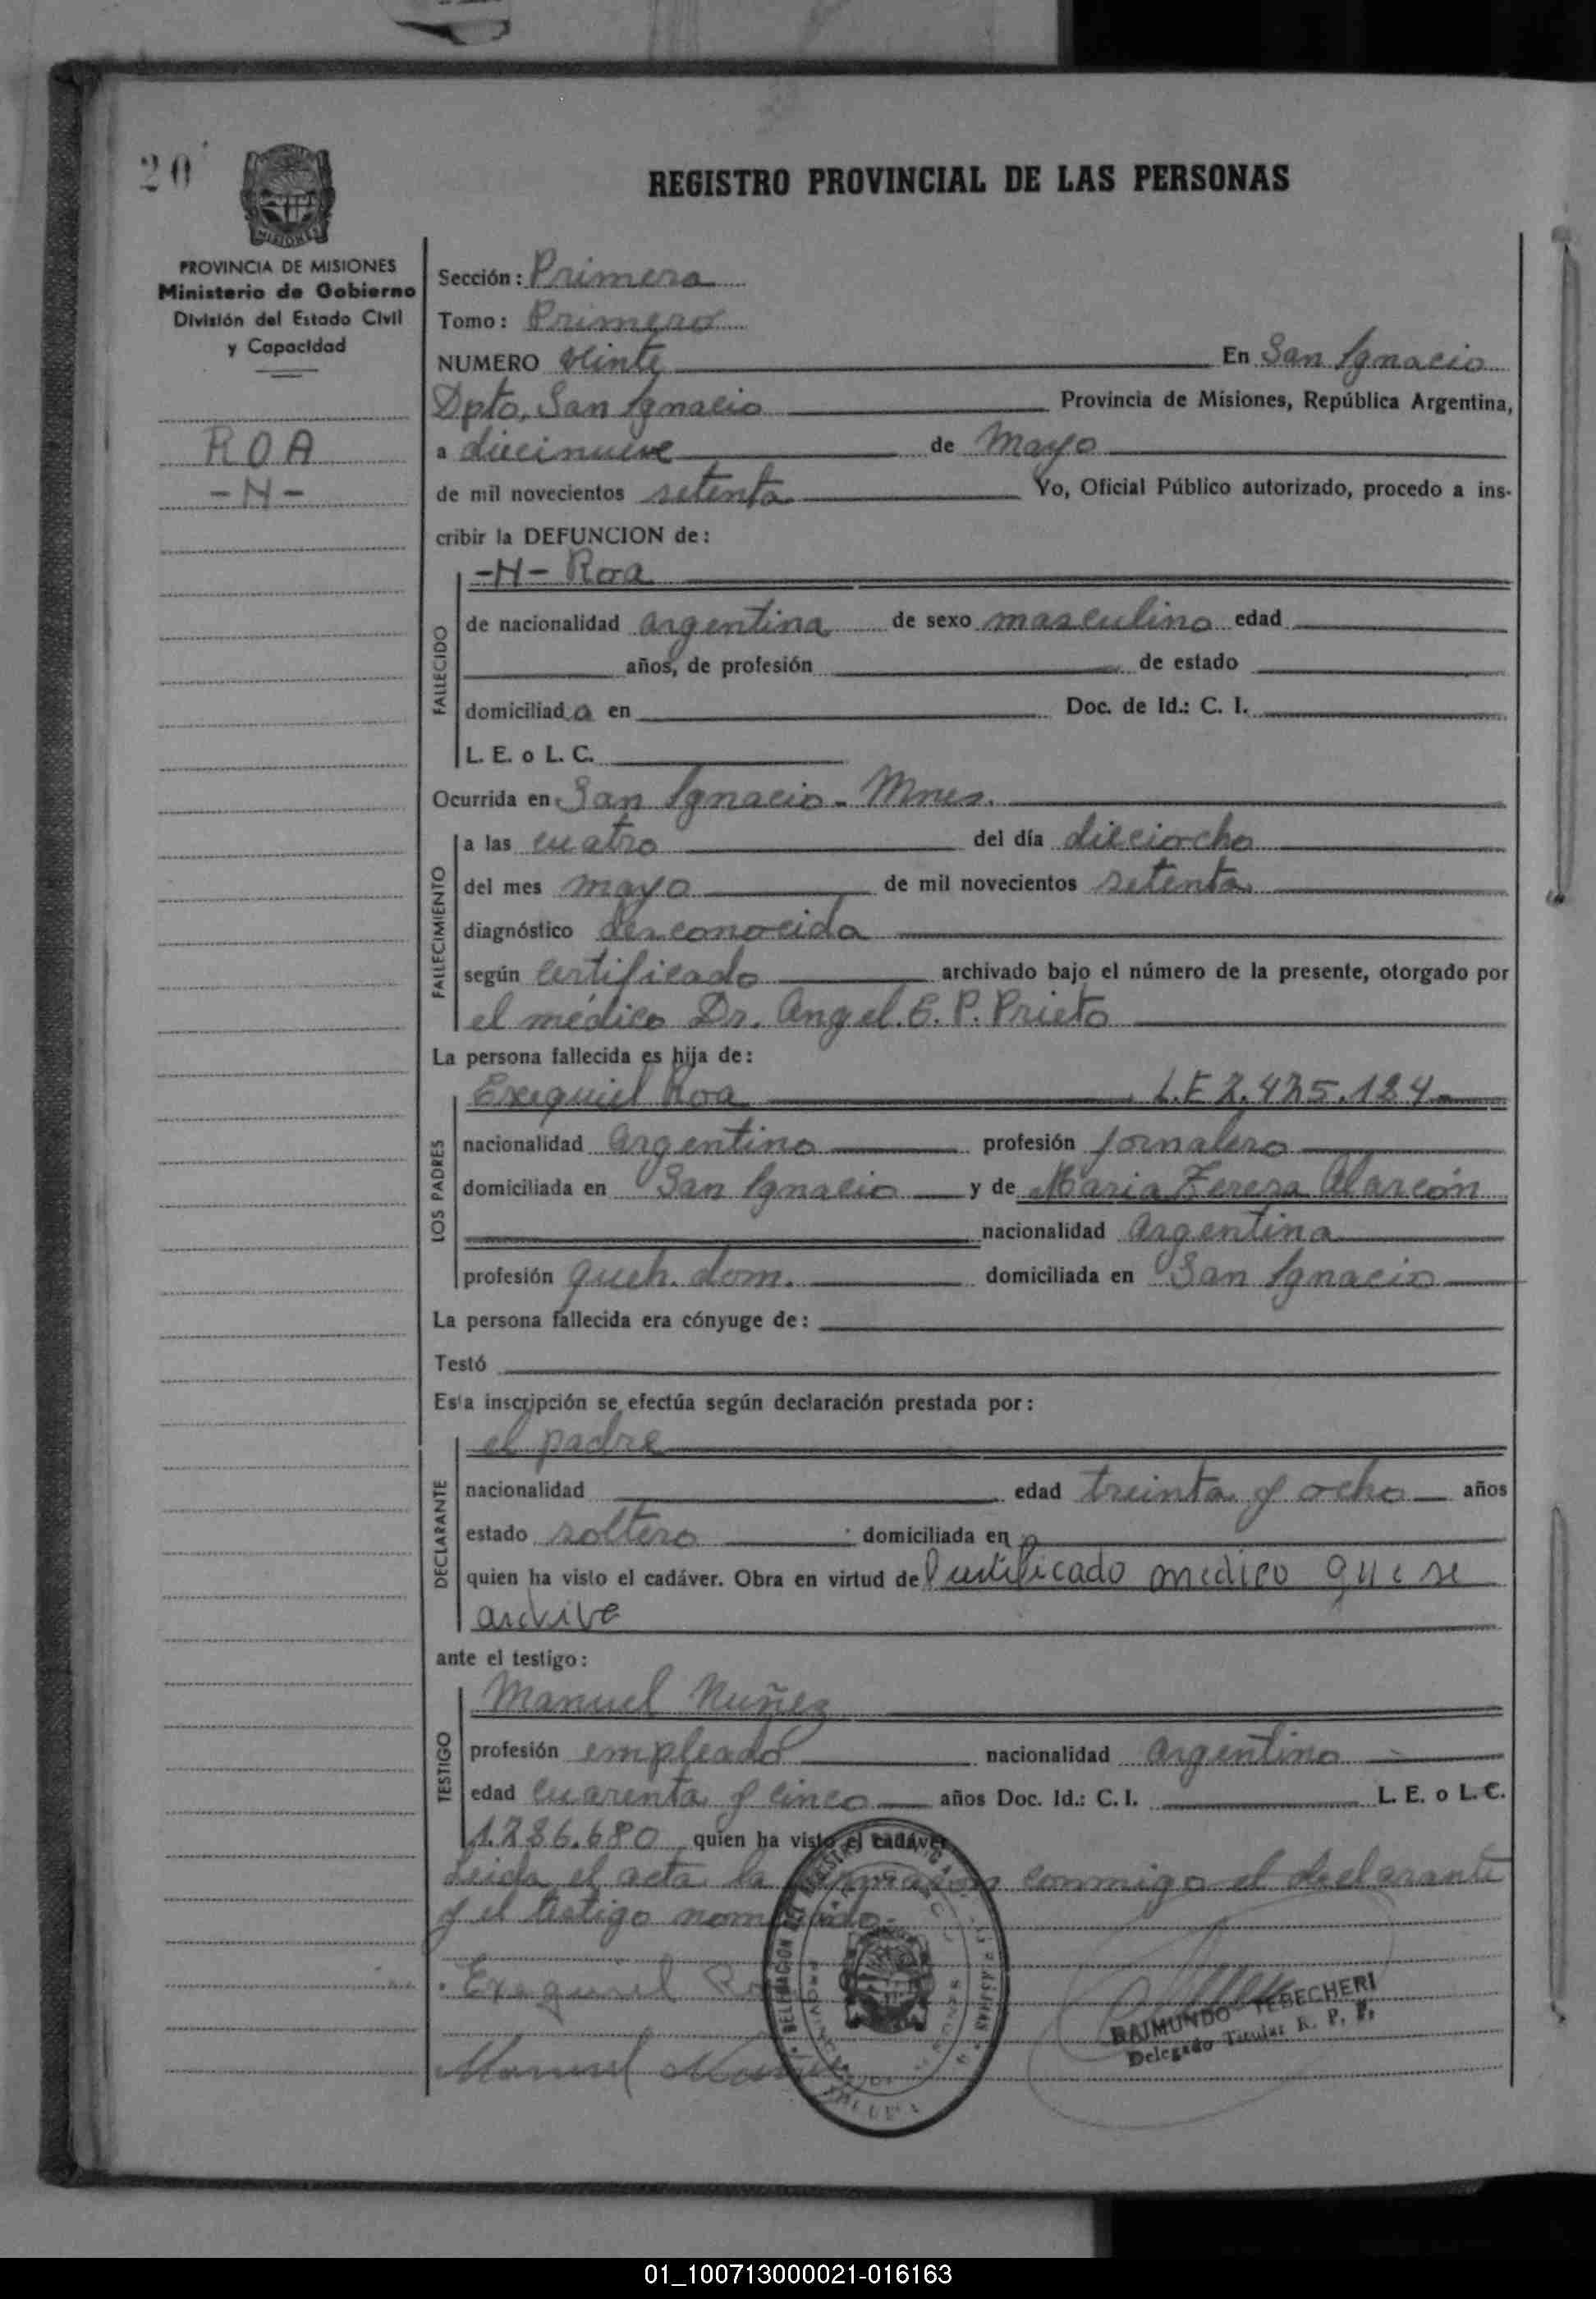 20
MISIONES
PROVINCIA DE MISIONES
Ministerio de Gobierno
División del Estado Civil
y Capacidad
ROA
-N-
REGISTRO PROVINCIAL DE LAS PERSONAS
Sección: Primera
Tomo: Primero
NUMERO veinte En San Ignacio
Dpto. San Ignacio Provincia de Misiones, República Argentina,
a diecinueve de Mayo
de mil novecientos setenta Yo, Oficial Público autorizado, procedo a ins-
cribir la DEFUNCION de:
-N- Roa
FALLECIDO
de nacionalidad argentina de sexo masculino edad
años, de profesión de estado
domiciliad o en Doc. de Id.: C. I.
L. E. o L. C.
Ocurrida en San Ignacio - Mnes.
FALLECIMIENTO
a las cuatro del día dieciocho
del mes mayo de mil novecientos setenta
diagnóstico desconocida
según certificado archivado bajo el número de la presente, otorgado por
el médico Dr. Angel. E. P. Prieto
La persona fallecida es hija de:
LOS PADRES
Exequiel Roa L.E 7.475.184
nacionalidad argentino profesión jornalero
domiciliada en San Ignacio y de Maria Teresa Alarcón
nacionalidad argentina
profesión queh. dom. domiciliada en San Ignacio
La persona fallecida era cónyuge de:
Testó
Esta inscripción se efectúa según declaración prestada por:
DECLARANTE
el padre
nacionalidad edad treinta y ocho años
estado soltero domiciliada en
quien ha visto el cadáver. Obra en virtud de Certificado medico que se
archive
ante el testigo:
TESTIGO
Manuel Nuñez
profesión empleado nacionalidad argentino
edad cuarenta y cinco años Doc. Id.: C. I. L. E. o L. C.
1.786.680 quien ha visto el cadáver
Leida el acta la firmaron conmigo el declarante
y el testigo nombrado.
Exequiel Roa
RAIMUNDO TEBECHERI
Delegado Titular R. P. P.
Manuel Nuñez
01_100713000021-016163